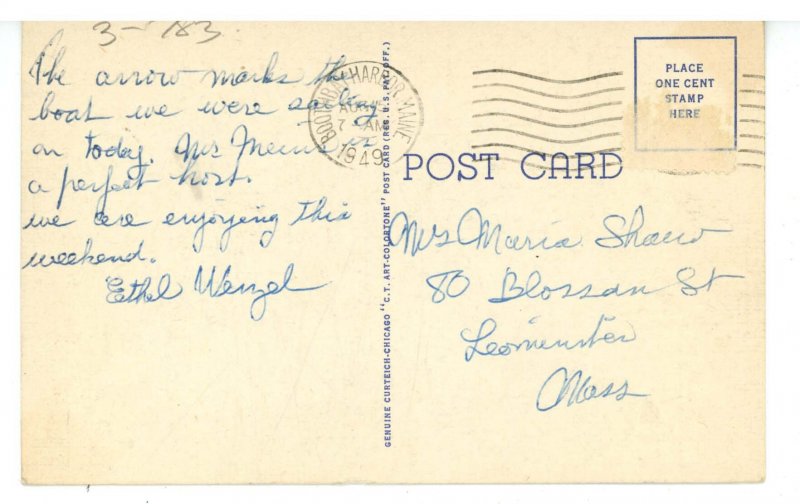 3-183
The arrow marks the
boat we were sailing
on today. Mrs is
a perfect host.
we are enjoying this
weekend.
Ethel Wenzel
GENUINE CURTEICH-CHICAGO "C.T. ART-COLORTONE" POST CARD (REG. U.S. PAT. OFF.)
BOOTHBAY HARBOR, MAINE
AUG
7 AM
1949
PLACE
ONE CENT
STAMP
HERE
POST CARD
Mrs Maria Shaw
80 Blossom St
Leominster
Mass